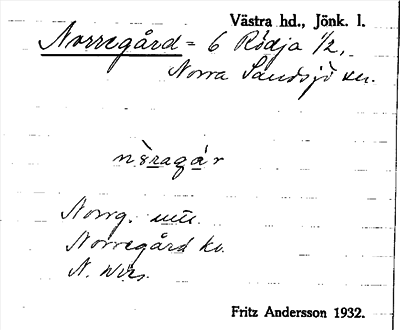 Västra hd., Jönk. l.
Norregård = 6 Rödja 1/2,
Norra Sandsjö sn.
Norrg.
Norregård kv.
N.
Fritz Andersson 1932.